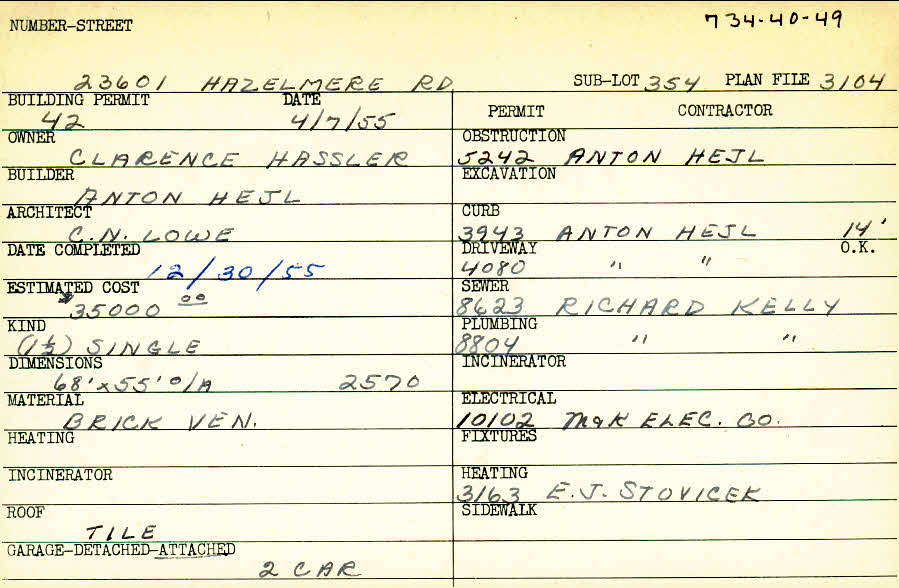 734-40-49
NUMBER-STREET
23601 HAZELMERE RD
SUB-LOT 354 PLAN FILE 3104
BUILDING PERMIT DATE
42 4/7/55
OWNER
CLARENCE HASSLER
BUILDER
ANTON HEJL
ARCHITECT
C.N. LOWE
DATE COMPLETED
12/30/55
ESTIMATED COST
$35000 00
KIND
(1½) SINGLE
DIMENSIONS
68'x55' O/A 2570
MATERIAL
BRICK VEN.
HEATING
INCINERATOR
ROOF
TILE
GARAGE-DETACHED-ATTACHED
2 CAR
PERMIT CONTRACTOR
OBSTRUCTION
5242 ANTON HEJL
EXCAVATION
CURB
3943 ANTON HEJL 14'
DRIVEWAY O.K.
4080 " "
SEWER
8623 RICHARD KELLY
PLUMBING
8804 " "
INCINERATOR
ELECTRICAL
10102 M&K ELEC. CO.
FIXTURES
HEATING
3163 E.J. STOVICEK
SIDEWALK